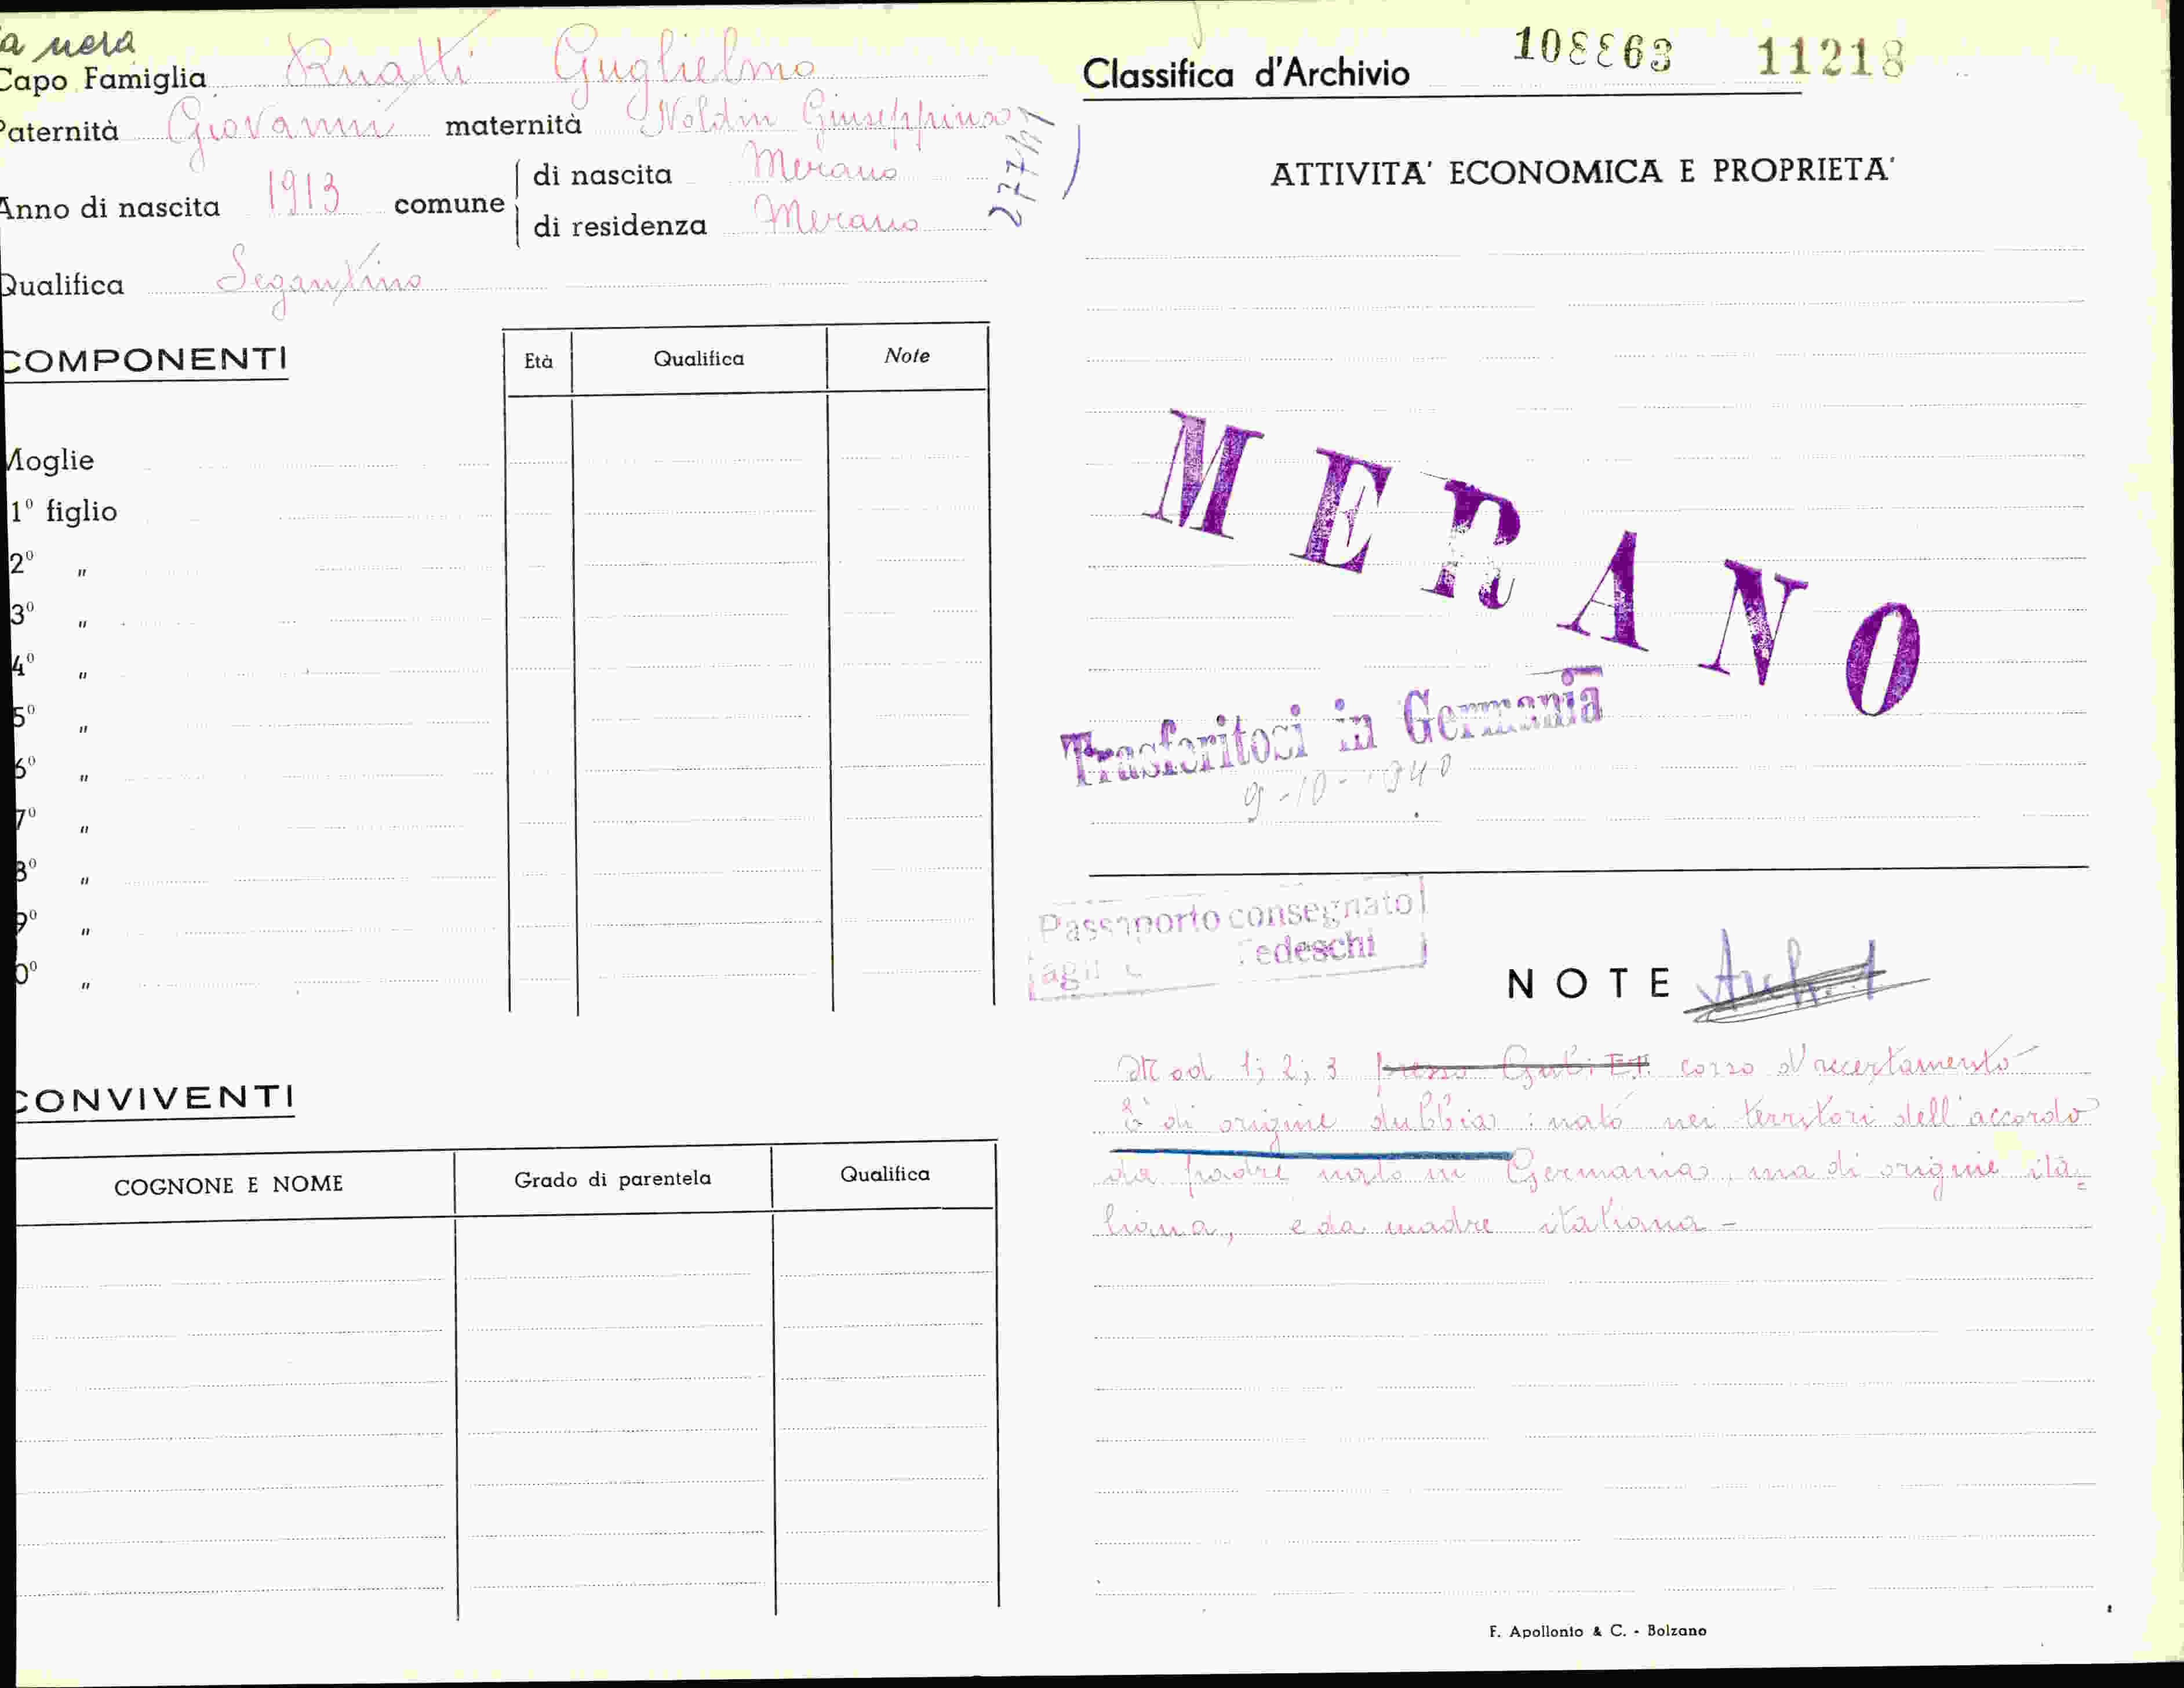 a nera
Capo Famiglia Ruatti Guglielmo
Paternità Giovanni maternità Noldin Giuseppina
Anno di nascita 1913 comune di nascita Merano
di residenza Merano
Qualifica Segantino
COMPONENTI
Età Qualifica Note
Moglie
1º figlio
2º "
3º "
4º "
5º "
6º "
7º "
8º "
9º "
0º "
CONVIVENTI
COGNONE E NOME Grado di parentela Qualifica
Classifica d'Archivio 108863 11218
ATTIVITA' ECONOMICA E PROPRIETA'
MERANO
Trasferitosi in Germania
9-10-1940
Passaporto consegnato
agli Tedeschi
NOTE
Mod 1; 2; 3 presso corso d'accertamento
È di origine dubbia: nato nei territori dell'accordo
da padre nato in Germania, ma di origine ita=
liana, e da madre italiana -
F. Apollonio & C. - Bolzano